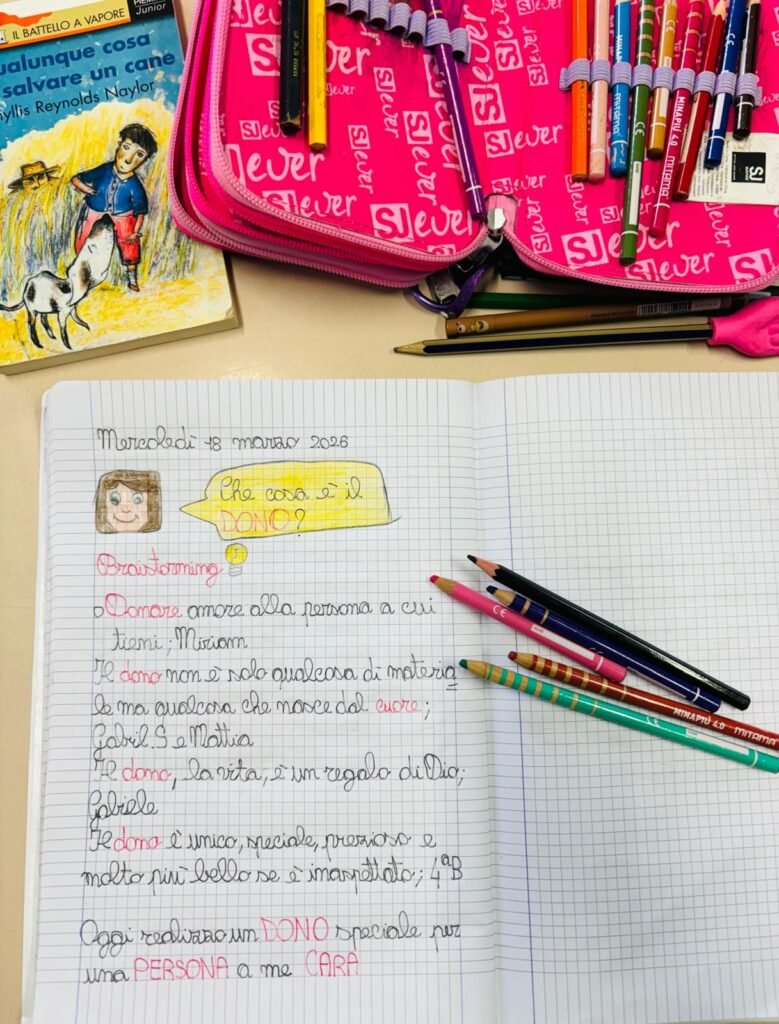 IL BATTELLO A VAPORE
Junior
ualunque cosa
salvare un cane
hyllis Reynolds Naylor
SJ ever
MINAPIÙ 4.0 MITAMA
Mercoledì 18 marzo 2026
Che cosa è il
DONO?
Braistorming
Donare amore alla persona a cui
tieni; Miriam
Il dono non è solo qualcosa di materia
le ma qualcosa che nasce dal cuore;
Gabril.S e Mattia
Il dono, la vita, è un regalo di Dio;
Gabiele
Il dono è unico, speciale, prezioso e
molto più bello se è inaspettato; 4ªB
Oggi realizzo un DONO speciale per
una PERSONA a me CARA
MINAPIÙ 4.0 - MITAMA